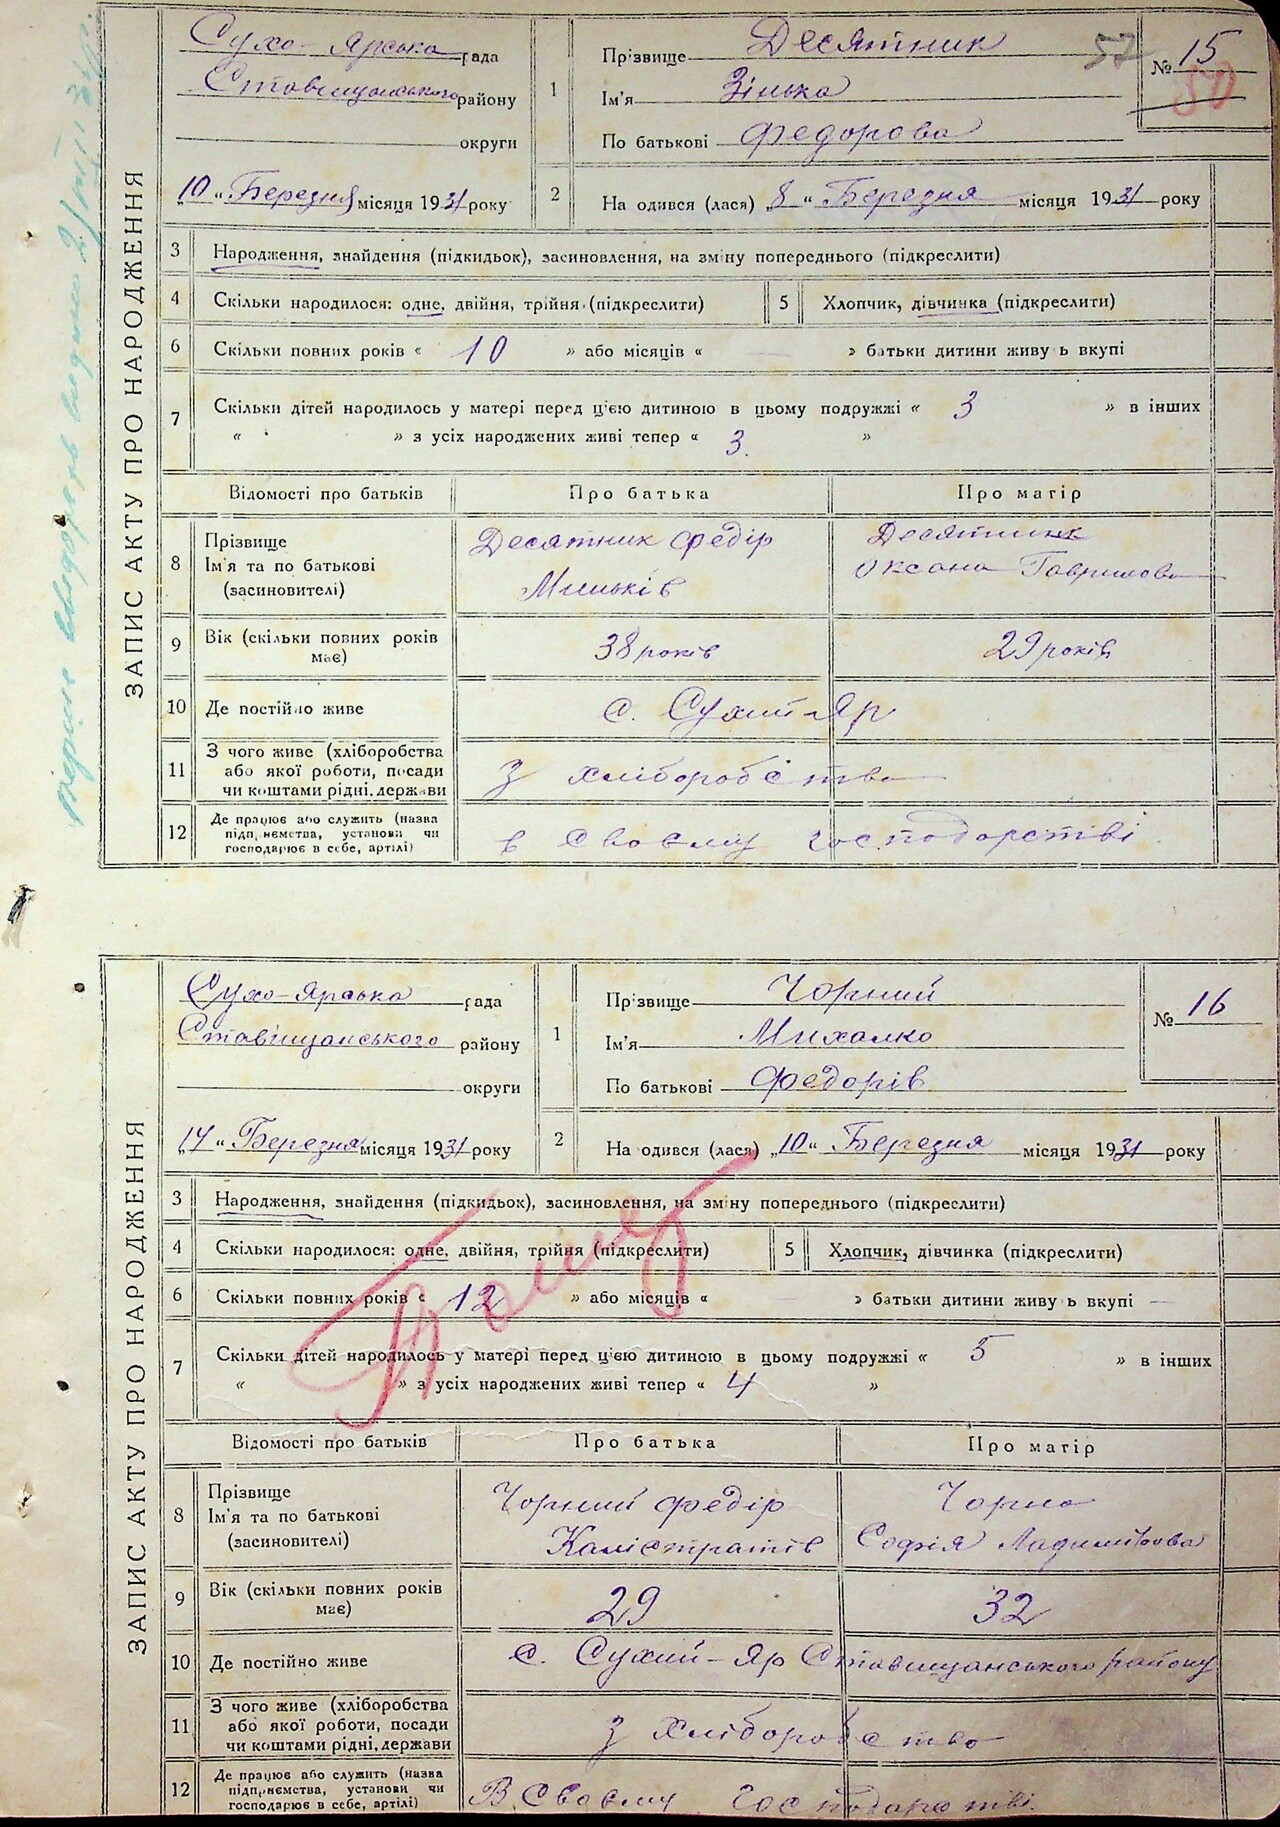 Сухо-Ярська рада
Ставищанського району
округи
„10“ Березня місяця 1931 року
1
Прізвище Десятник
Ім'я Зінька
По батькові Федорова
57
№ 15
50
2
На одився (лася) „8“ Березня місяця 1931 року
ЗАПИС АКТУ ПРО НАРОДЖЕННЯ
3 Народження, знайдення (підкидьок), засиновлення, на зміну попереднього (підкреслити)
4 Скільки народилося: одне, двійня, трійня (підкреслити) 5 Хлопчик, дівчинка (підкреслити)
6 Скільки повних років « 10 » або місяців « — » батьки дитини живуть вкупі
7 Скільки дітей народилось у матері перед цією дитиною в цьому подружжі « 3 » в інших
« » з усіх народжених живі тепер « 3. »
Відомості про батьків Про батька Про матір
8 Прізвище
Ім'я та по батькові
(засиновителі)
Десятник Федір
Миньків
Десятник
Оксана Гаврилова
9 Вік (скільки повних років
має)
38 років
29 років
10 Де постійно живе с. Сухий-Яр
11 З чого живе (хліборобства
або якої роботи, посади
чи коштами рідні, держави
З хліборобства
12 Де працює або служить (назва
підприємства, установи чи
господарює в себе, артілі)
в своєму господарстві
Сухо-Ярська рада
Ставищанського району
округи
„14“ Березня місяця 1931 року
1
Прізвище Чорний
Ім'я Михалко
По батькові Федорів
№ 16
2
На одився (лася) „10“ Березня місяця 1931 року
ЗАПИС АКТУ ПРО НАРОДЖЕННЯ
3 Народження, знайдення (підкидьок), засиновлення, на зміну попереднього (підкреслити)
4 Скільки народилося: одне, двійня, трійня (підкреслити) 5 Хлопчик, дівчинка (підкреслити)
6 Скільки повних років « 12 » або місяців « » батьки дитини живуть вкупі —
7 Скільки дітей народилось у матері перед цією дитиною в цьому подружжі « 5 » в інших
« » з усіх народжених живі тепер « 4 »
Відомості про батьків Про батька Про матір
8 Прізвище
Ім'я та по батькові
(засиновителі)
Чорний Федір
Калістратів
Чорна
Софія Ладимірова
9 Вік (скільки повних років
має)
29
32
10 Де постійно живе с. Сухий-Яр Ставищанського району
11 З чого живе (хліборобства
або якої роботи, посади
чи коштами рідні, держави
З хліборобства
12 Де працює або служить (назва
підприємства, установи чи
господарює в себе, артілі)
В Своєму господарстві.